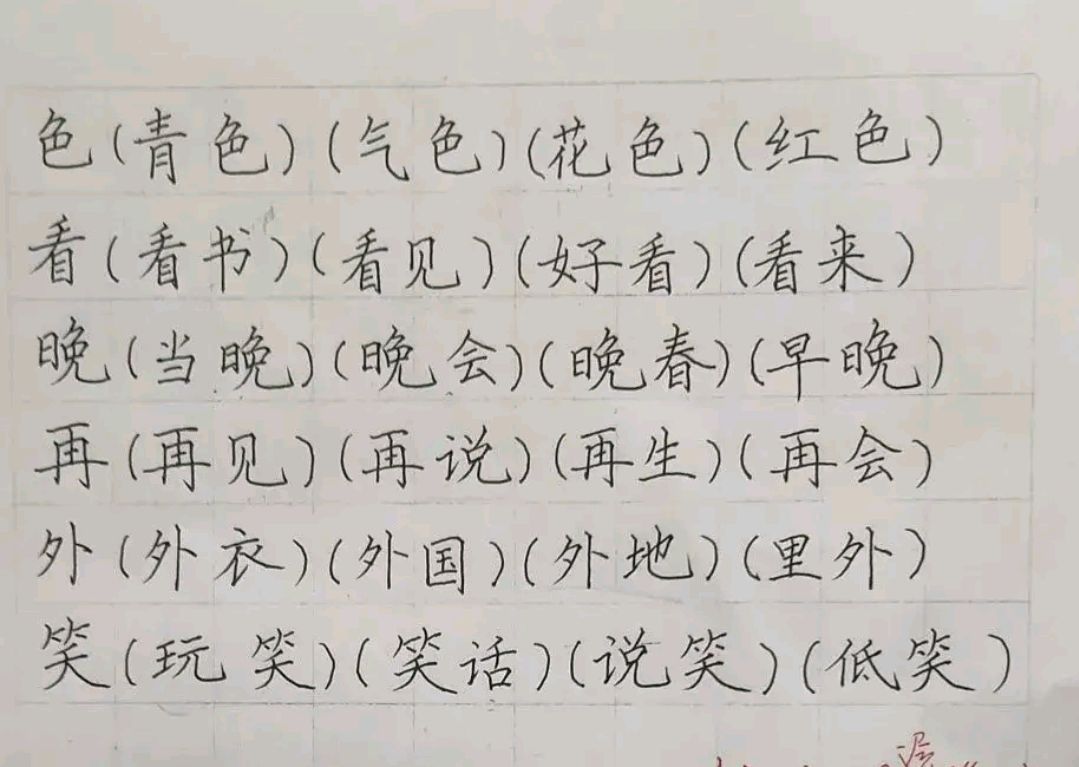 色(青色)(气色)(花色)(红色)
看(看书)(看见)(好看)(看来)
晚(当晚)(晚会)(晚春)(早晚)
再(再见)(再说)(再生)(再会)
外(外衣)(外国)(外地)(里外)
笑(玩笑)(笑话)(说笑)(低笑)